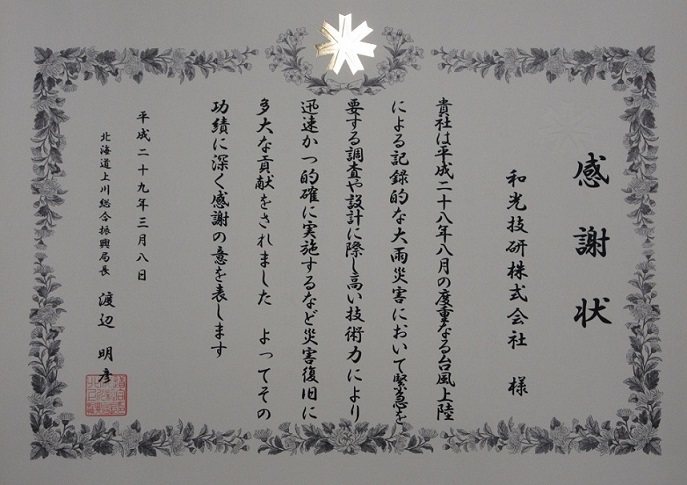 感謝状
和光技研株式会社 様
貴社は平成二十八年八月の度重なる台風上陸
による記録的な大雨災害において緊急を
要する調査や設計に際し高い技術力により
迅速かつ的確に実施するなど災害復旧に
多大な貢献をされました よってその
功績に深く感謝の意を表します
平成二十九年三月八日
北海道上川総合振興局長 渡辺 明彦